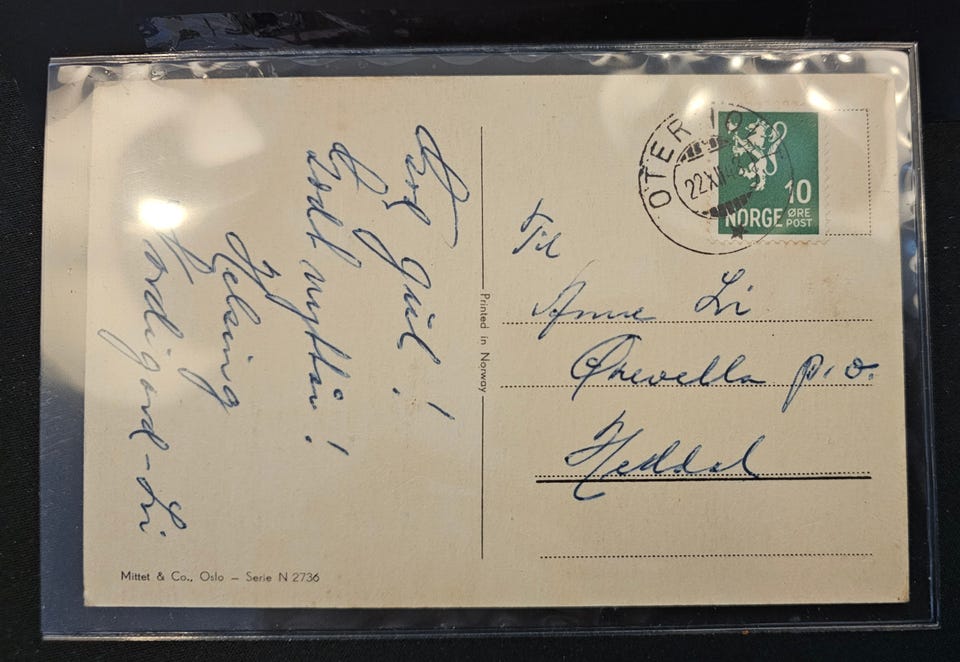 God Jul!
Godt nyttår!
Helsing
Nordigard-Li
Printed in Norway
22 XII
10
NORGE ØRE
POST
Til
Anne Li
Ørvella p.o.
Heddal
Mittet & Co., Oslo – Serie N 2736